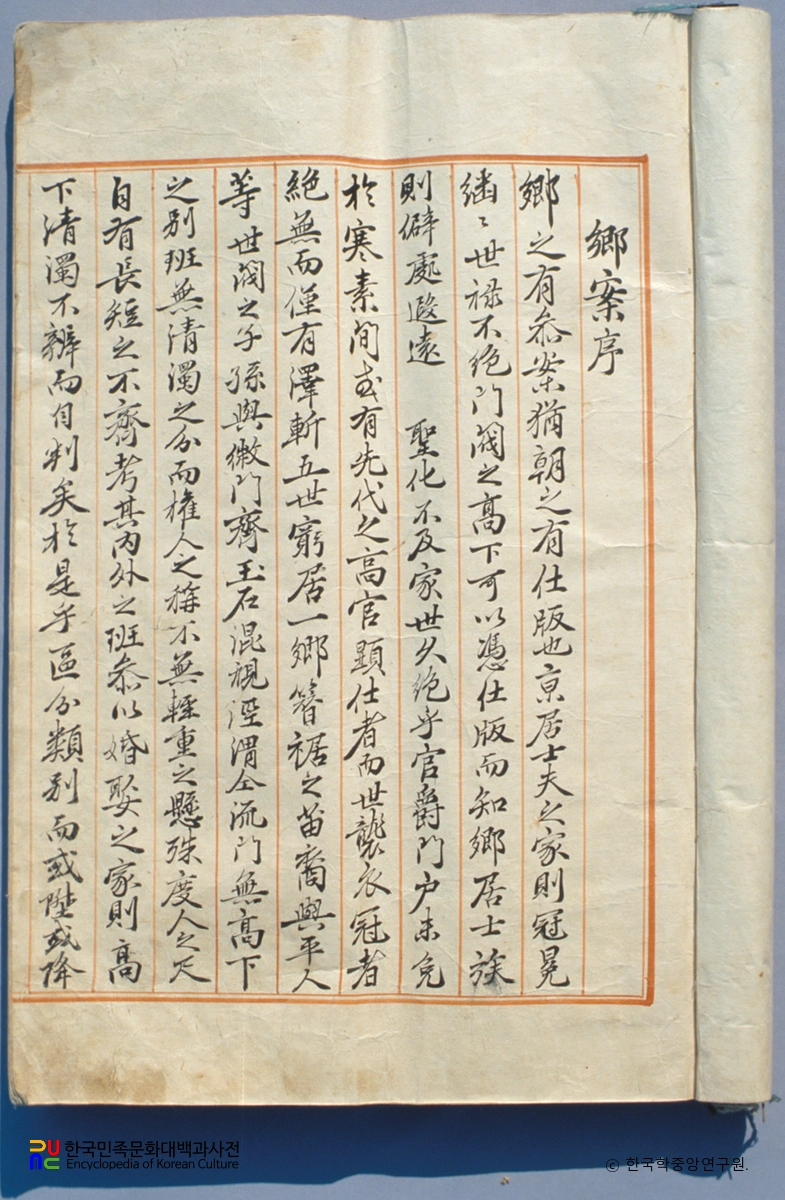 鄕案序
鄕之有叅案猶朝之有仕版也京居士夫之家則冠冕
繙〻世祿不絶門閥之高下可以憑仕版而知鄕居士族
則僻處遐遠 聖化不及家世久絶乎官爵門户未免
於寒素間或有先代之高官顯仕者而世襲衣冠者
絶無而僅有澤斬五世窮居一鄕簪裾之苗裔與平人
等世閥之子孫與微門齊玉石混視涇渭仝流門無高下
之別班無清濁之分而權人之稱不無輕重之懸殊度人之尺
自有長短之不齊考其內外之班叅以婚娶之家則高
下清濁不辨而自判矣於是乎區分類別而或陞或降
한국민족문화대백과사전
Encyclopedia of Korean Culture
© 한국학중앙연구원.